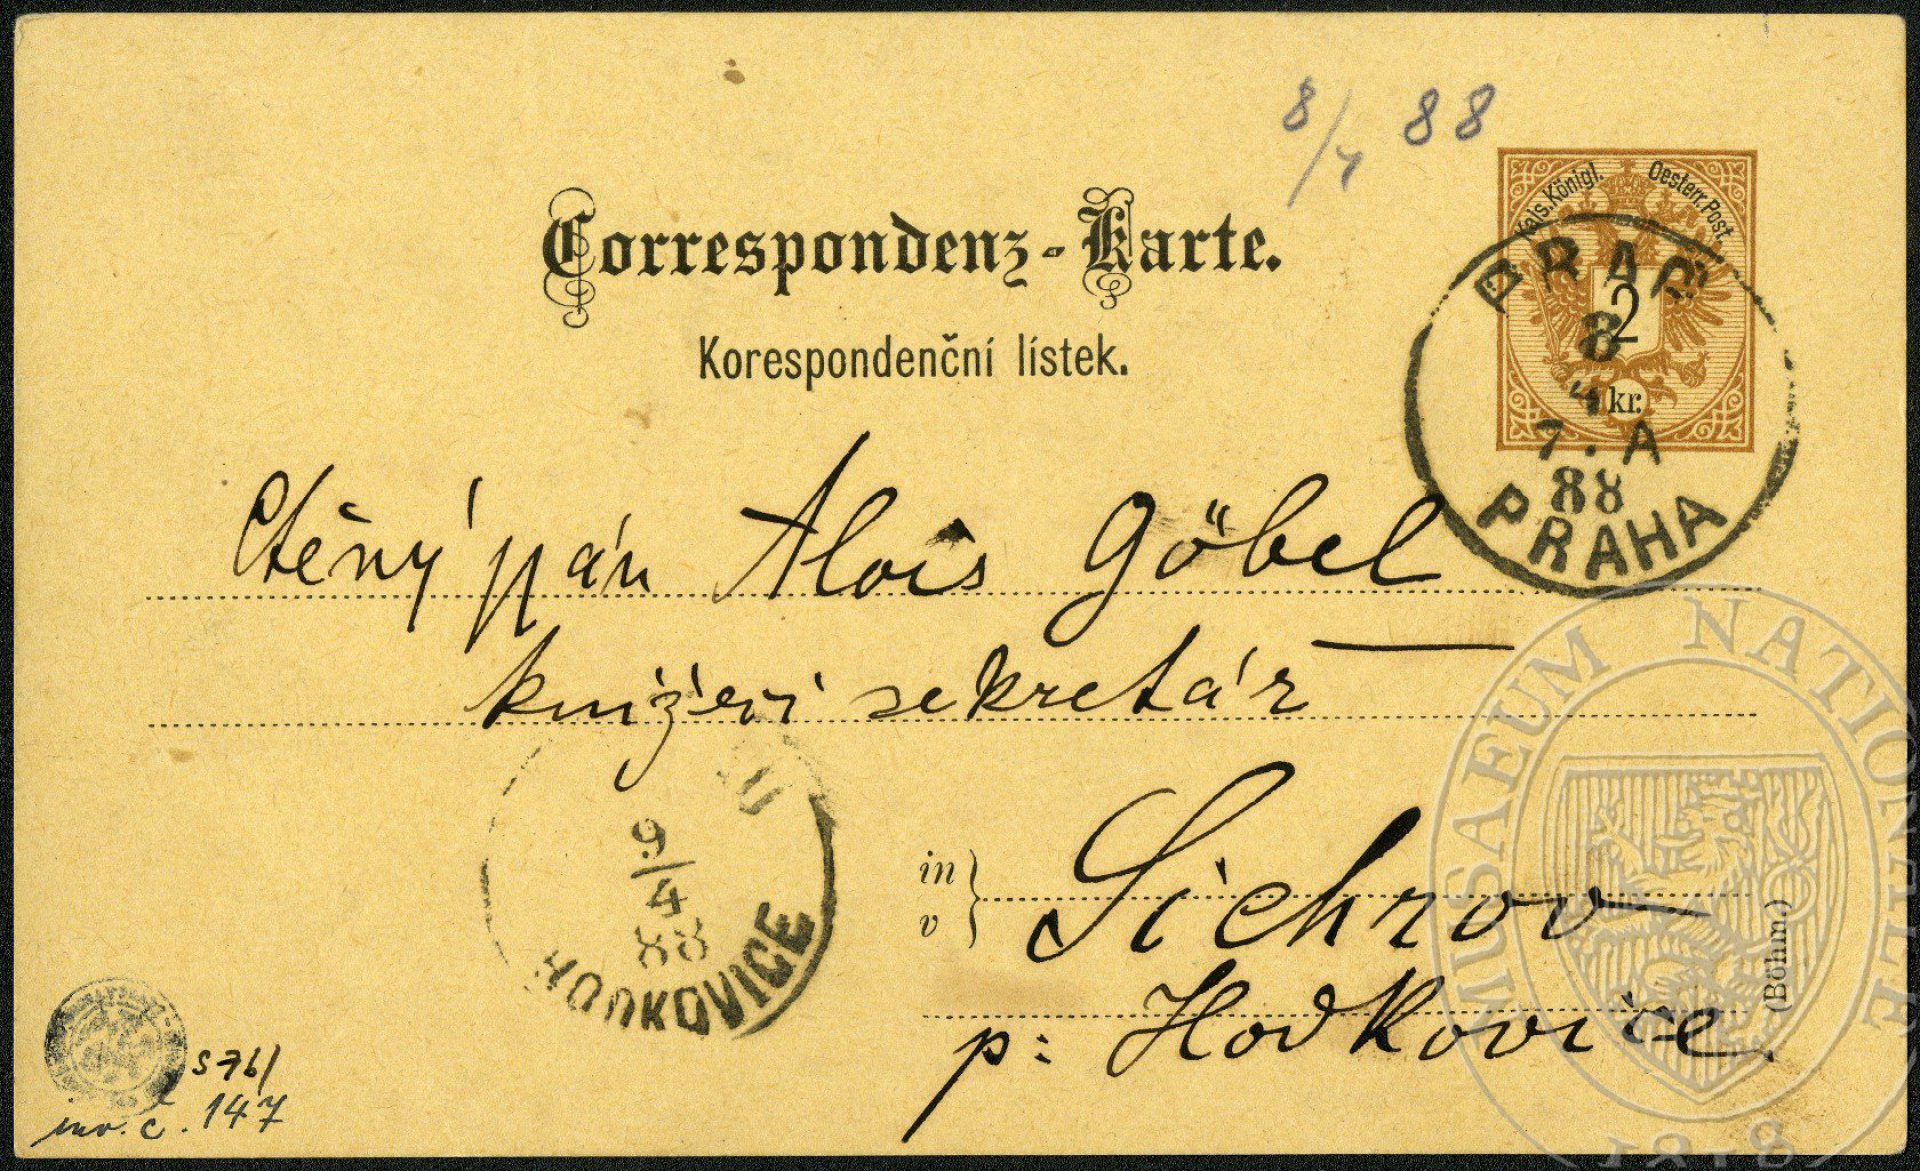 8/4 88
Correspondenz-Karte.
Korespondenční lístek.
Kais. Königl. Oesterr. Post.
2 kr.
PRAG
8
4
7. A
88
PRAHA
Ctěný pán Alois Göbel
knížecí sekretář
in
v
Sichrov
p: Hodkovice
(Böhm.)
9/4
88
HODKOVICE
S 76/
inv. č. 147
MUSAEUM NATIONALE
1818